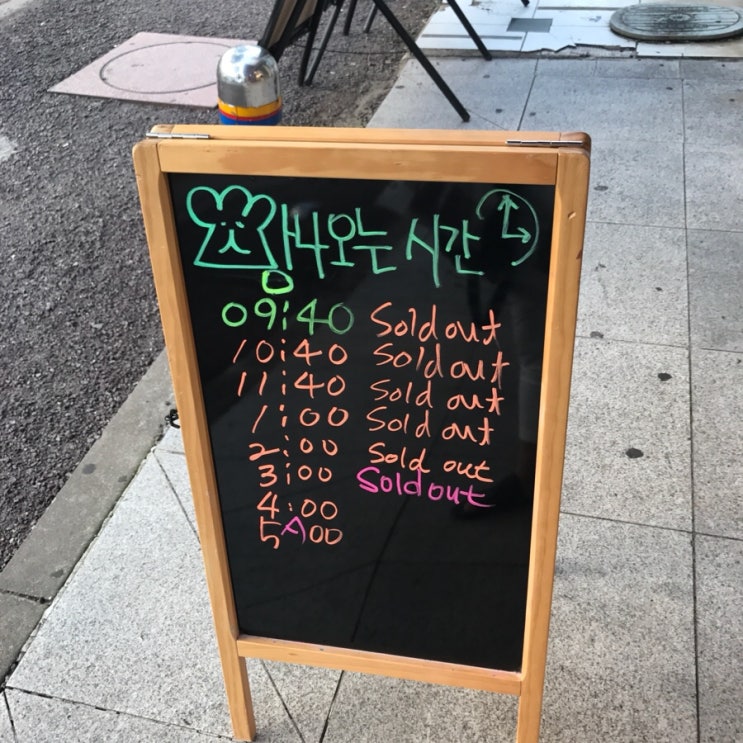 빵나오는 시간
09:40 Sold out
10:40 Sold out
11:40 Sold out
1:00 Sold out
2:00 Sold out
3:00 Sold out
4:00
5:00